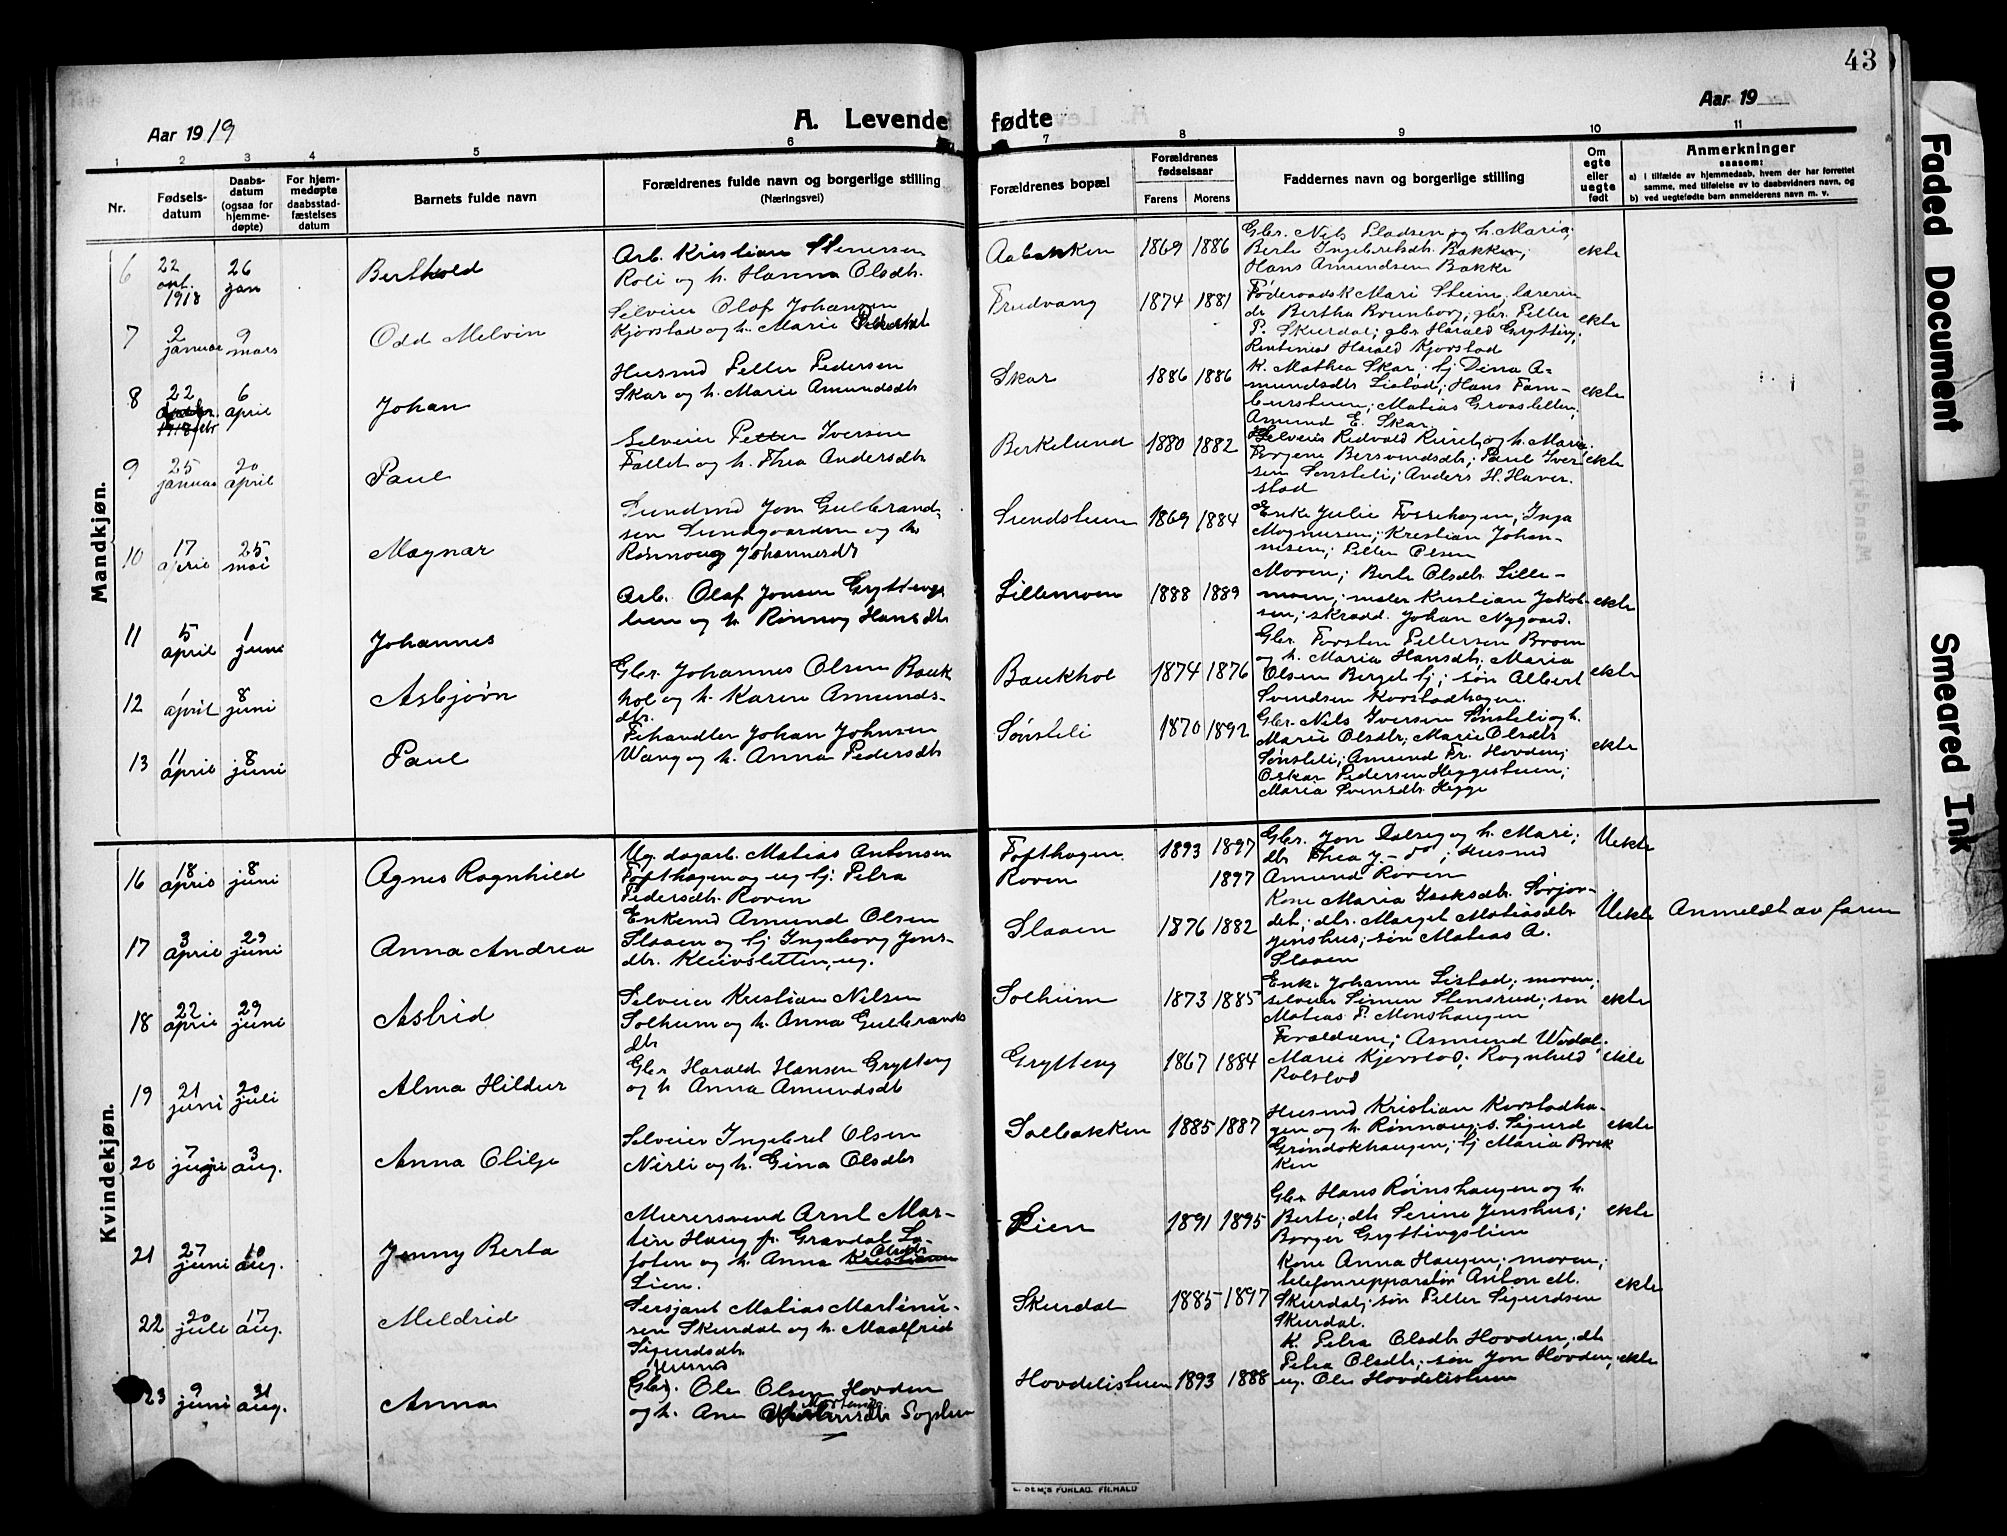 43
Aar 1919
A. Levende fødte
Aar 19
1 2 3 4 5 6 7 8 9 10 11
Nr.
Fødsels-
datum
Daabs-
datum
(ogsaa for
hjemme-
døpte)
For hjem-
medøpte
daabsstad-
fæstelses
datum
Barnets fulde navn
Forældrenes fulde navn og borgerlige stilling
(Næringsvei)
Forældrenes bopæl
Forældrenes
fødselsaar
Farens Morens
Faddernes navn og borgerlige stilling
Om
egte
eller
uegte
født
Anmerkninger
saasom:
a) i tilfælde av hjemmedaab, hvem der har forrettet
samme, med tilføielse av to daabsvidners navn, og
b) ved uegtefødte barn anmelderens navn m. v.
Mandkjøn.
6
22
okt.
1918
26
jan
Berthold
Arb. Kristian Stenersen
Roli og h. Hanna Olsdtr.
Aabakken
1869 1886
Gbr. Nils Pladsen og h. Maria;
Berte Ingebretsdtr. Bakken;
Hans Amundsen Bakke
ekte
7
2
januar
9
mars
Odd Melvin
Selveier Olaf Johansen
Kjørstad og h. Marie
Frudvang
1874 1881
Føderaadsk Mari Stuim, lærerin
de Bertha Brunborg; gbr. Petter
P. Skurdal; gbr Harald Grytting;
Rentenist Harald Kjørstad
ekte
8
22
febr
6
april
Johan
Husmd Petter Pedersen
Skar og h. Marie Amundsdtr
Skar
1886 1886
K. Mathea Skar; bj Dina A-
mundsdtr Listad; Hans Tam-
burstuen; Matias Graasletten;
Amund E. Skar
ekte
9
25
januar
20
april
Paul
Selveier Petter Iversen
Fallet og h. Thea Andersdtr
Berkelund
1880 1882
Selveier Redvald Ruret og h. Maria;
Torgine Bersvendsdtr; Paul Iver
sen Sønsteli; Anders H. Haver-
stad
ekte
10
17
april
25
mai
Magnar
Sundmd Jon Gulbrand-
sen Sundgaarden og h.
Rønnoug Johannesdtr
Sundstuen
1869 1884
Enke Julie Fossehagen; Inga
Mognusen; Kristian Johan-
nesen; Petter Olsen
11
5
april
1
juni
Johannes
Arb. Olaf Jonsen Gryttings
lien og h. Rønnog Hansdtr
Lillemoen
1888 1889
Moren; Berte Olsdtr Lille-
moen; maler Kristian Jakob-
sen; skrædd. Johan Nygaard.
ekte
12
1
april
8
juni
Asbjørn
Gbr. Johannes Olsen Bauk
hol og h. Karen Amunds-
dtr.
Baukhol
1874 1876
Gbr. Torsten Pettersen Broin
og h. Maria Hansdtr; Maria
Olsen Berget bj; søn Albert
Svendsen Korstadhagen.
ekte
13
11
april
8
juni
Paul
Fehandler Johan Johnsen
Wang og h. Anna Pedersdtr
Sønsteli
1870 1892
Gbr. Nils Iversen Sønsteli og h.
Marie Olsdtr; Marie Olsdtr
Sønsteli; Amund Fr. Hovden;
Oskar Pedersen Heggestuen;
Maria Svensdtr Hegge
ekte
Kvindekjøn.
16
18
april
8
juni
Agnes Ragnhild
Ug. dagarb. Matias Antonsen
Tofthagen og ug bj. Petra
Pedersdtr. Roven
Tofthagen
Roven
1893 1897
1897
Gbr. Jon Dalseg og h. Mari;
dtr Thea J. - do; Husmd
Amund Roven
Uekte
17
3
april
29
juni
Anna Andrea
Enkemd Amund Olsen
Slaaen og bj Ingeborg Jons-
dtr. Kleivsletten, ug.
Slaaen
1876 1882
Kone Maria Isaksdtr. Sørjor-
det; dtr. Marget Matiasdtr
Jenshus; søn Matias A.
Slaaen
Uekte
Anmeldt av faren
18
22
april
29
juni
Astrid
Selveier Kristian Nilsen
Solheim og h. Anna Gulbrands
dtr
Solheim
1873 1885
Enke Johanne Listad; moren;
selveier Simen Stensrud; søn
Matias P. Monshaugen
ekte
19
21
juni
20
juli
Alma Hildur
Gbr Harald Hansen Grytting
og h Anna Amundsdtr
Grytting
1867 1884
Forældrene; Amund Wadal;
Marie Kjørstad; Ragnhild
Rolstad
ekte
20
7
juni
3
aug.
Anna Olilje
Selveier Ingebret Olsen
Nirli og h. Gina Olsdtr
Solbakken
1885 1887
Husmd Kristian Korstadha-
gen og h. Rønnaug; s. Sigurd
Grøndokhaugen; bj Maria Brek
ken
ekte
21
27
juni
10
aug.
Jenny Berta
Meierersvend Arnt Mar-
tin Haug fr. Gravdal Lo-
foten og h. Anna Olsdtr
Lien.
Lien
1891 1895
Gbr Hans Rønshaugen og h.
Berte; dtr Serine Jenshus;
Borger Gryttingslien
ekte
22
20
juli
17
aug.
Meldrid
Sersjant Matias Martinu-
sen Skurdal og h. Maalfrid
Sigurdsdtr
Skurdal
1885 1897
Kone Anna Haugen; moren;
telefonreppparatør Anton M.
Skurdal; søn Petter Sigurdsen
Skurdal.
ekte
23
9
juni
31
aug.
Anna
Husmd
Gbr. Ole Olsen Hovden
og h. Ane
Hovdelistuen
1893 1888
K. Petra Olsdtr Hovden; dtr
Petra Olsdtr; søn Jon Hovden;
ug. Ole Hovdelistuen
ekte
E. SEM'S FORLAG, FR.HALD
Faded Document
Smeared Ink